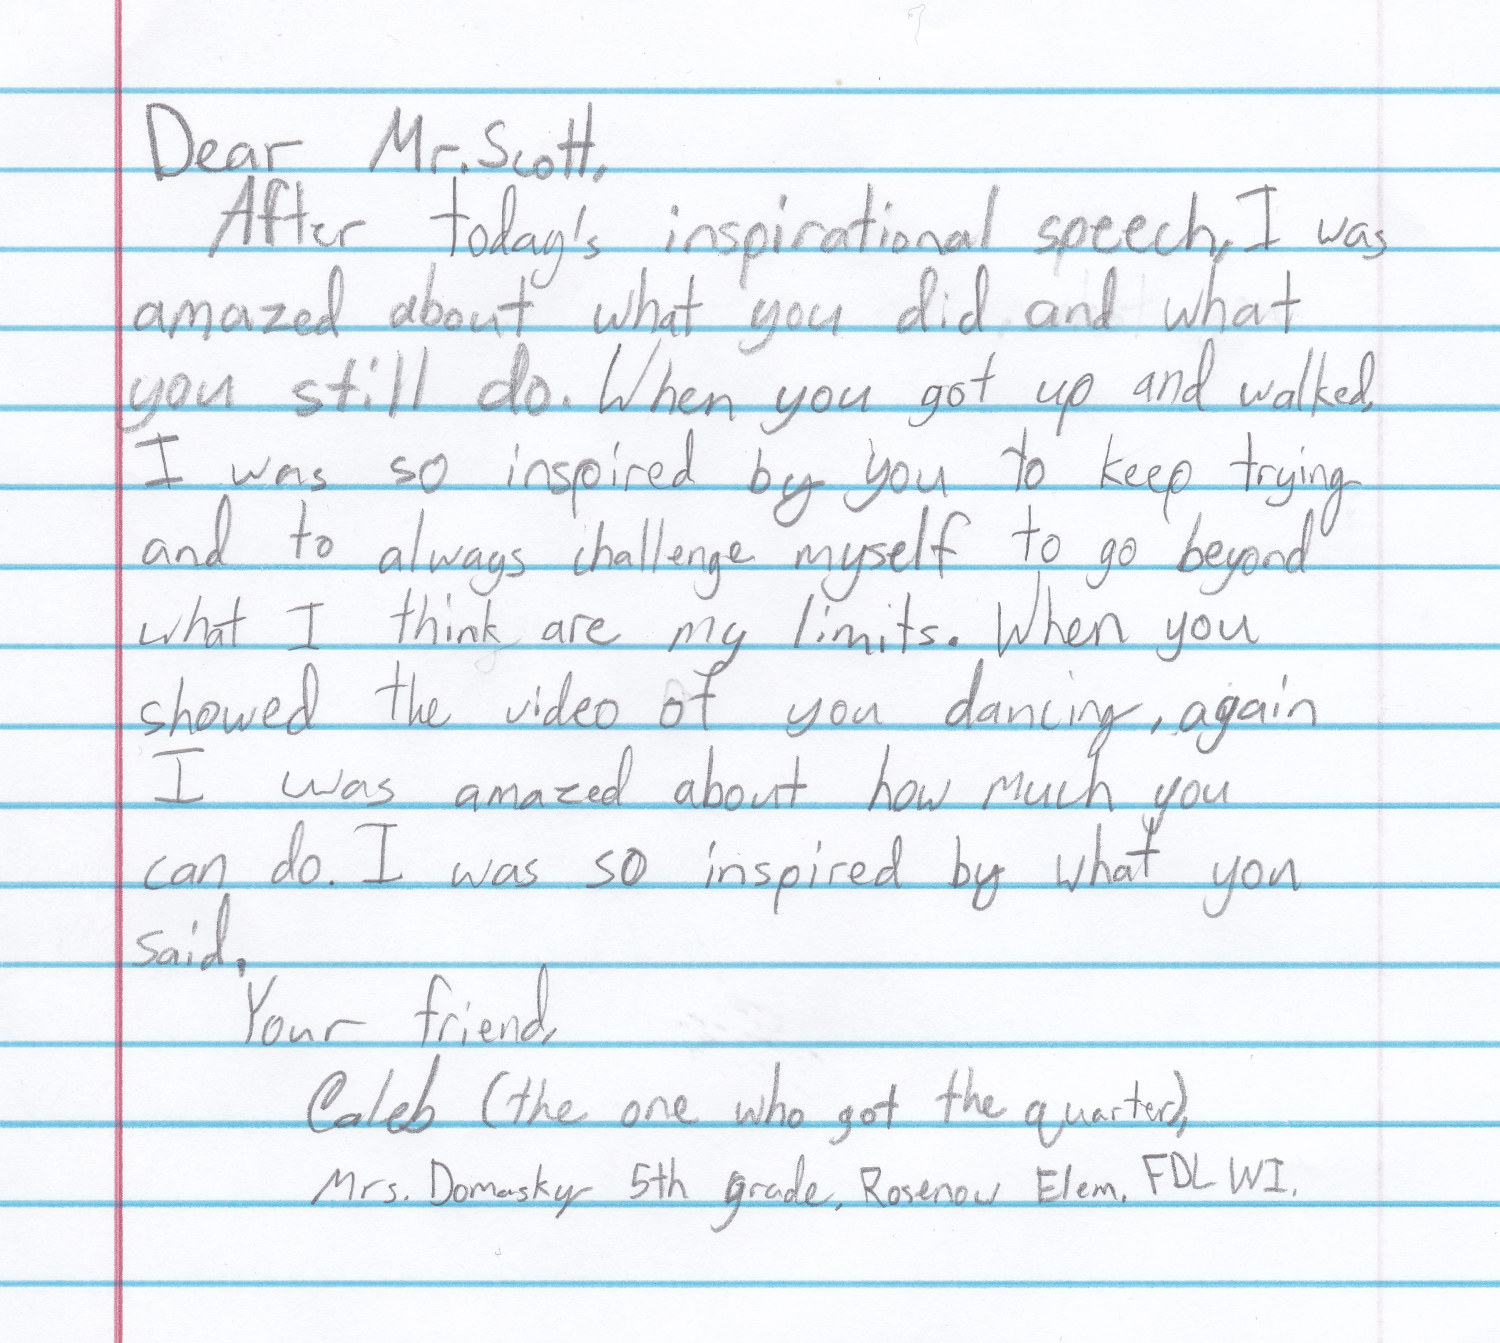 Dear Mr. Scott,
After today's inspirational speech, I was
amazed about what you did and what
you still do. When you got up and walked,
I was so inspired by you to keep trying
and to always challenge myself to go beyond
what I think are my limits. When you
showed the video of you dancing, again
I was amazed about how much you
can do. I was so inspired by what you
said.
Your friend,
Caleb (the one who got the quarter),
Mrs. Domasky 5th grade, Rosenow Elem. FDL WI.